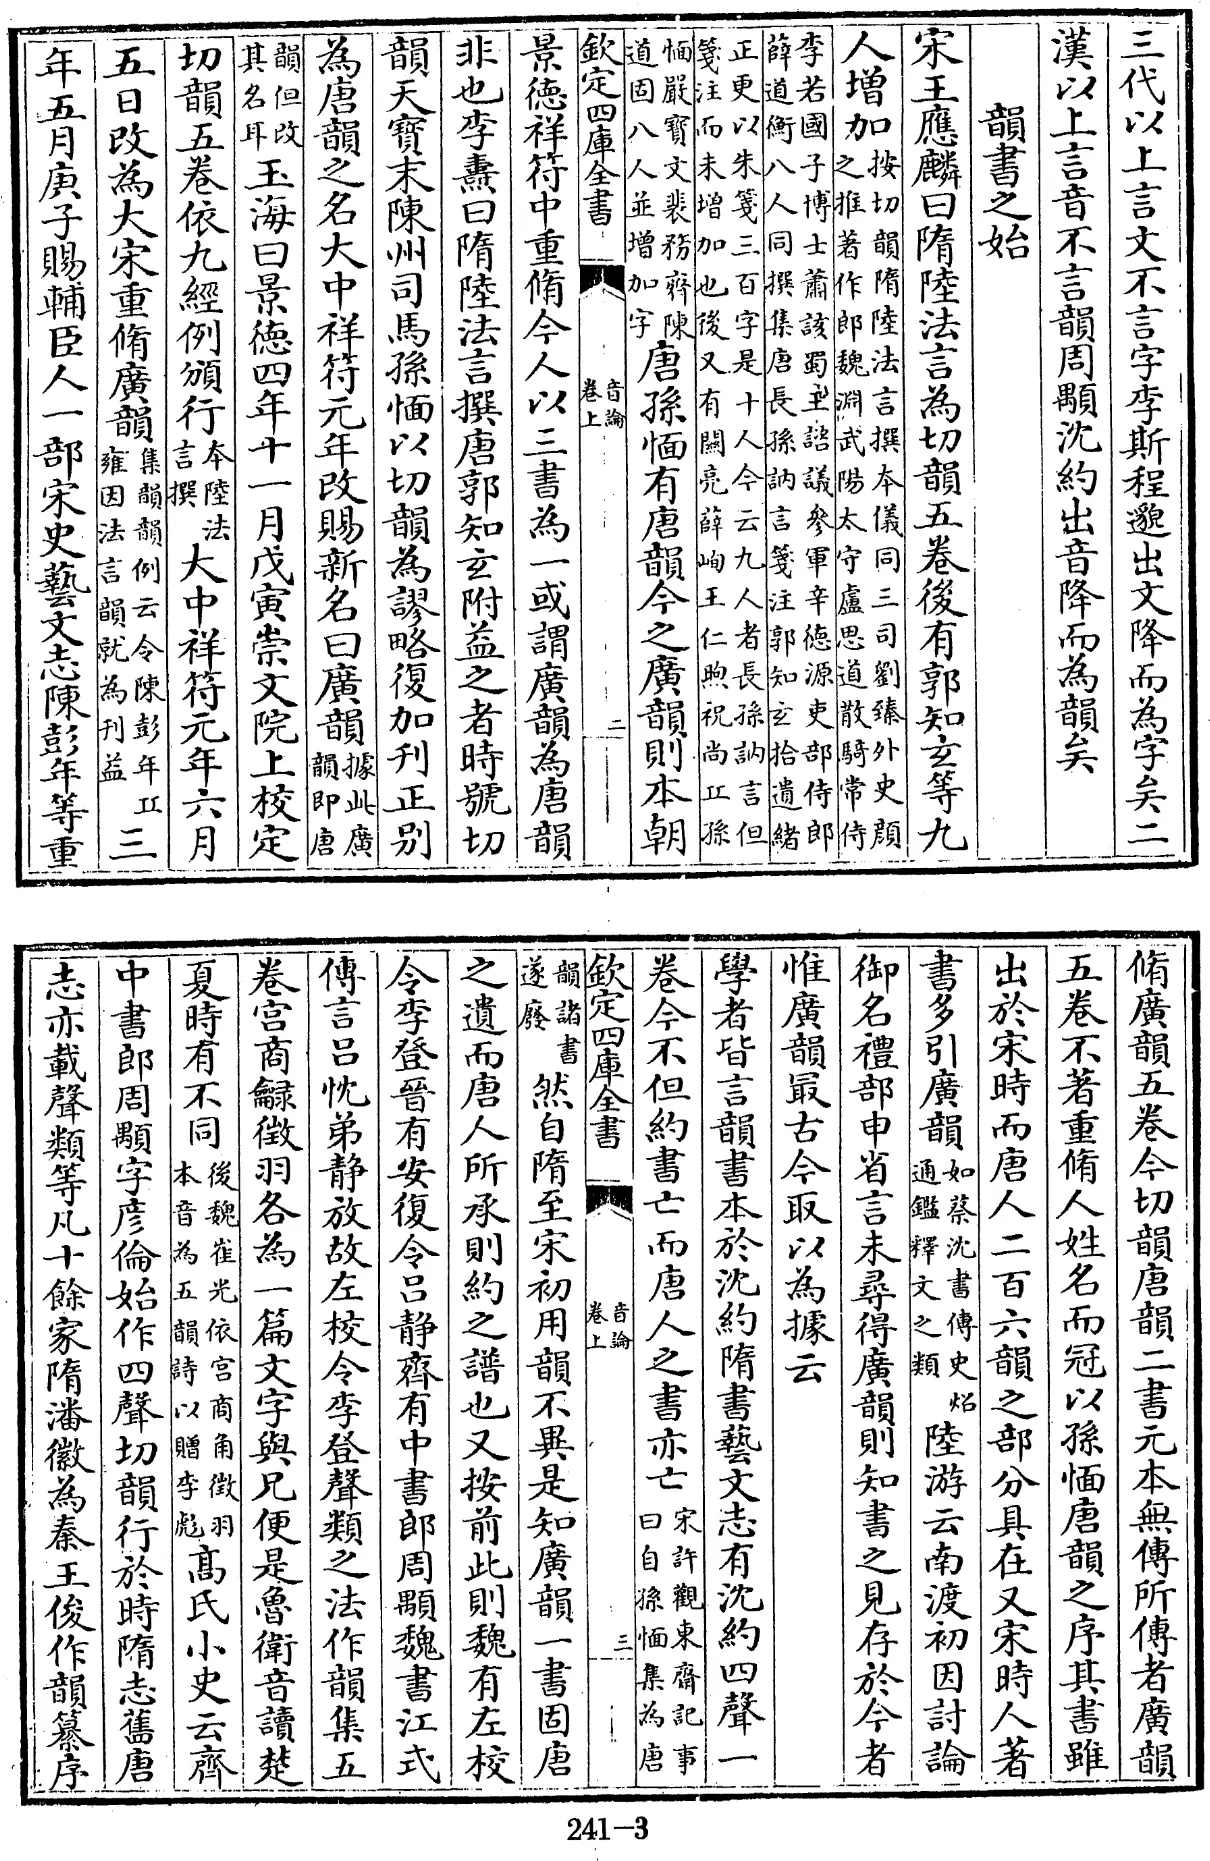 三代以上言文不言字李斯程邈出文降而為字矣二
漢以上言音不言韻周顒沈約出音降而為韻矣
韻書之始
宋王應麟曰隋陸法言為切韻五卷後有郭知玄等九
人增加
按切韻隋陸法言撰本儀同三司劉臻外史顏
之推著作郎魏淵武陽太守盧思道散騎常侍
李若國子博士蕭該蜀王諮議參軍辛德源吏部侍郎
薛道衡八人同撰集唐長孫訥言箋注郭知玄拾遺緒
正更以朱箋三百字是十人今云九人者長孫訥言但
箋注而未增加也後又有關亮薛峋王仁煦祝尚丘孫
愐嚴寶文裴務齊陳
道固八人並增加字
唐孫愐有唐韻今之廣韻則本朝
欽定四庫全書
音論
卷上
二
景德祥符中重脩今人以三書為一或謂廣韻為唐韻
非也李燾曰隋陸法言撰唐郭知玄附益之者時號切
韻天寶末陳州司馬孫愐以切韻為謬略復加刊正别
為唐韻之名大中祥符元年改賜新名曰廣韻
據此廣
韻即唐
韻但改
其名耳
玉海曰景德四年十一月戊寅崇文院上校定
切韻五卷依九經例頒行
本陸法
言撰
大中祥符元年六月
五日改為大宋重脩廣韻
集韻韻例云令陳彭年丘
雍因法言韻就為刊益
三
年五月庚子賜輔臣人一部宋史藝文志陳彭年等重
脩廣韻五卷今切韻唐韻二書元本無傳所傳者廣韻
五卷不著重脩人姓名而冠以孫愐唐韻之序其書雖
出於宋時而唐人二百六韻之部分具在又宋時人著
書多引廣韻
如蔡沈書傳史炤
通鑑釋文之類
陸游云南渡初因討論
御名禮部申省言未尋得廣韻則知書之見存於今者
惟廣韻最古今取以為據云
學者皆言韻書本於沈約隋書藝文志有沈約四聲一
卷今不但約書亡而唐人之書亦亡
宋許觀東齋記事
曰自孫愐集為唐
欽定四庫全書
音論
卷上
三
韻諸書
遂廢
然自隋至宋初用韻不異是知廣韻一書固唐
之遺而唐人所承則約之譜也又按前此則魏有左校
令李登晉有安復令呂静齊有中書郎周顒魏書江式
傳言呂忱弟静放故左校令李登聲類之法作韻集五
卷宫商龣徵羽各為一篇文字與兄便是魯衛音讀楚
夏時有不同
後魏崔光依宫商角徵羽
本音為五韻詩以贈李彪
髙氏小史云齊
中書郎周顒字彦倫始作四聲切韻行於時隋志舊唐
志亦載聲類等凡十餘家隋潘徽為秦王俊作韻纂序
241-3